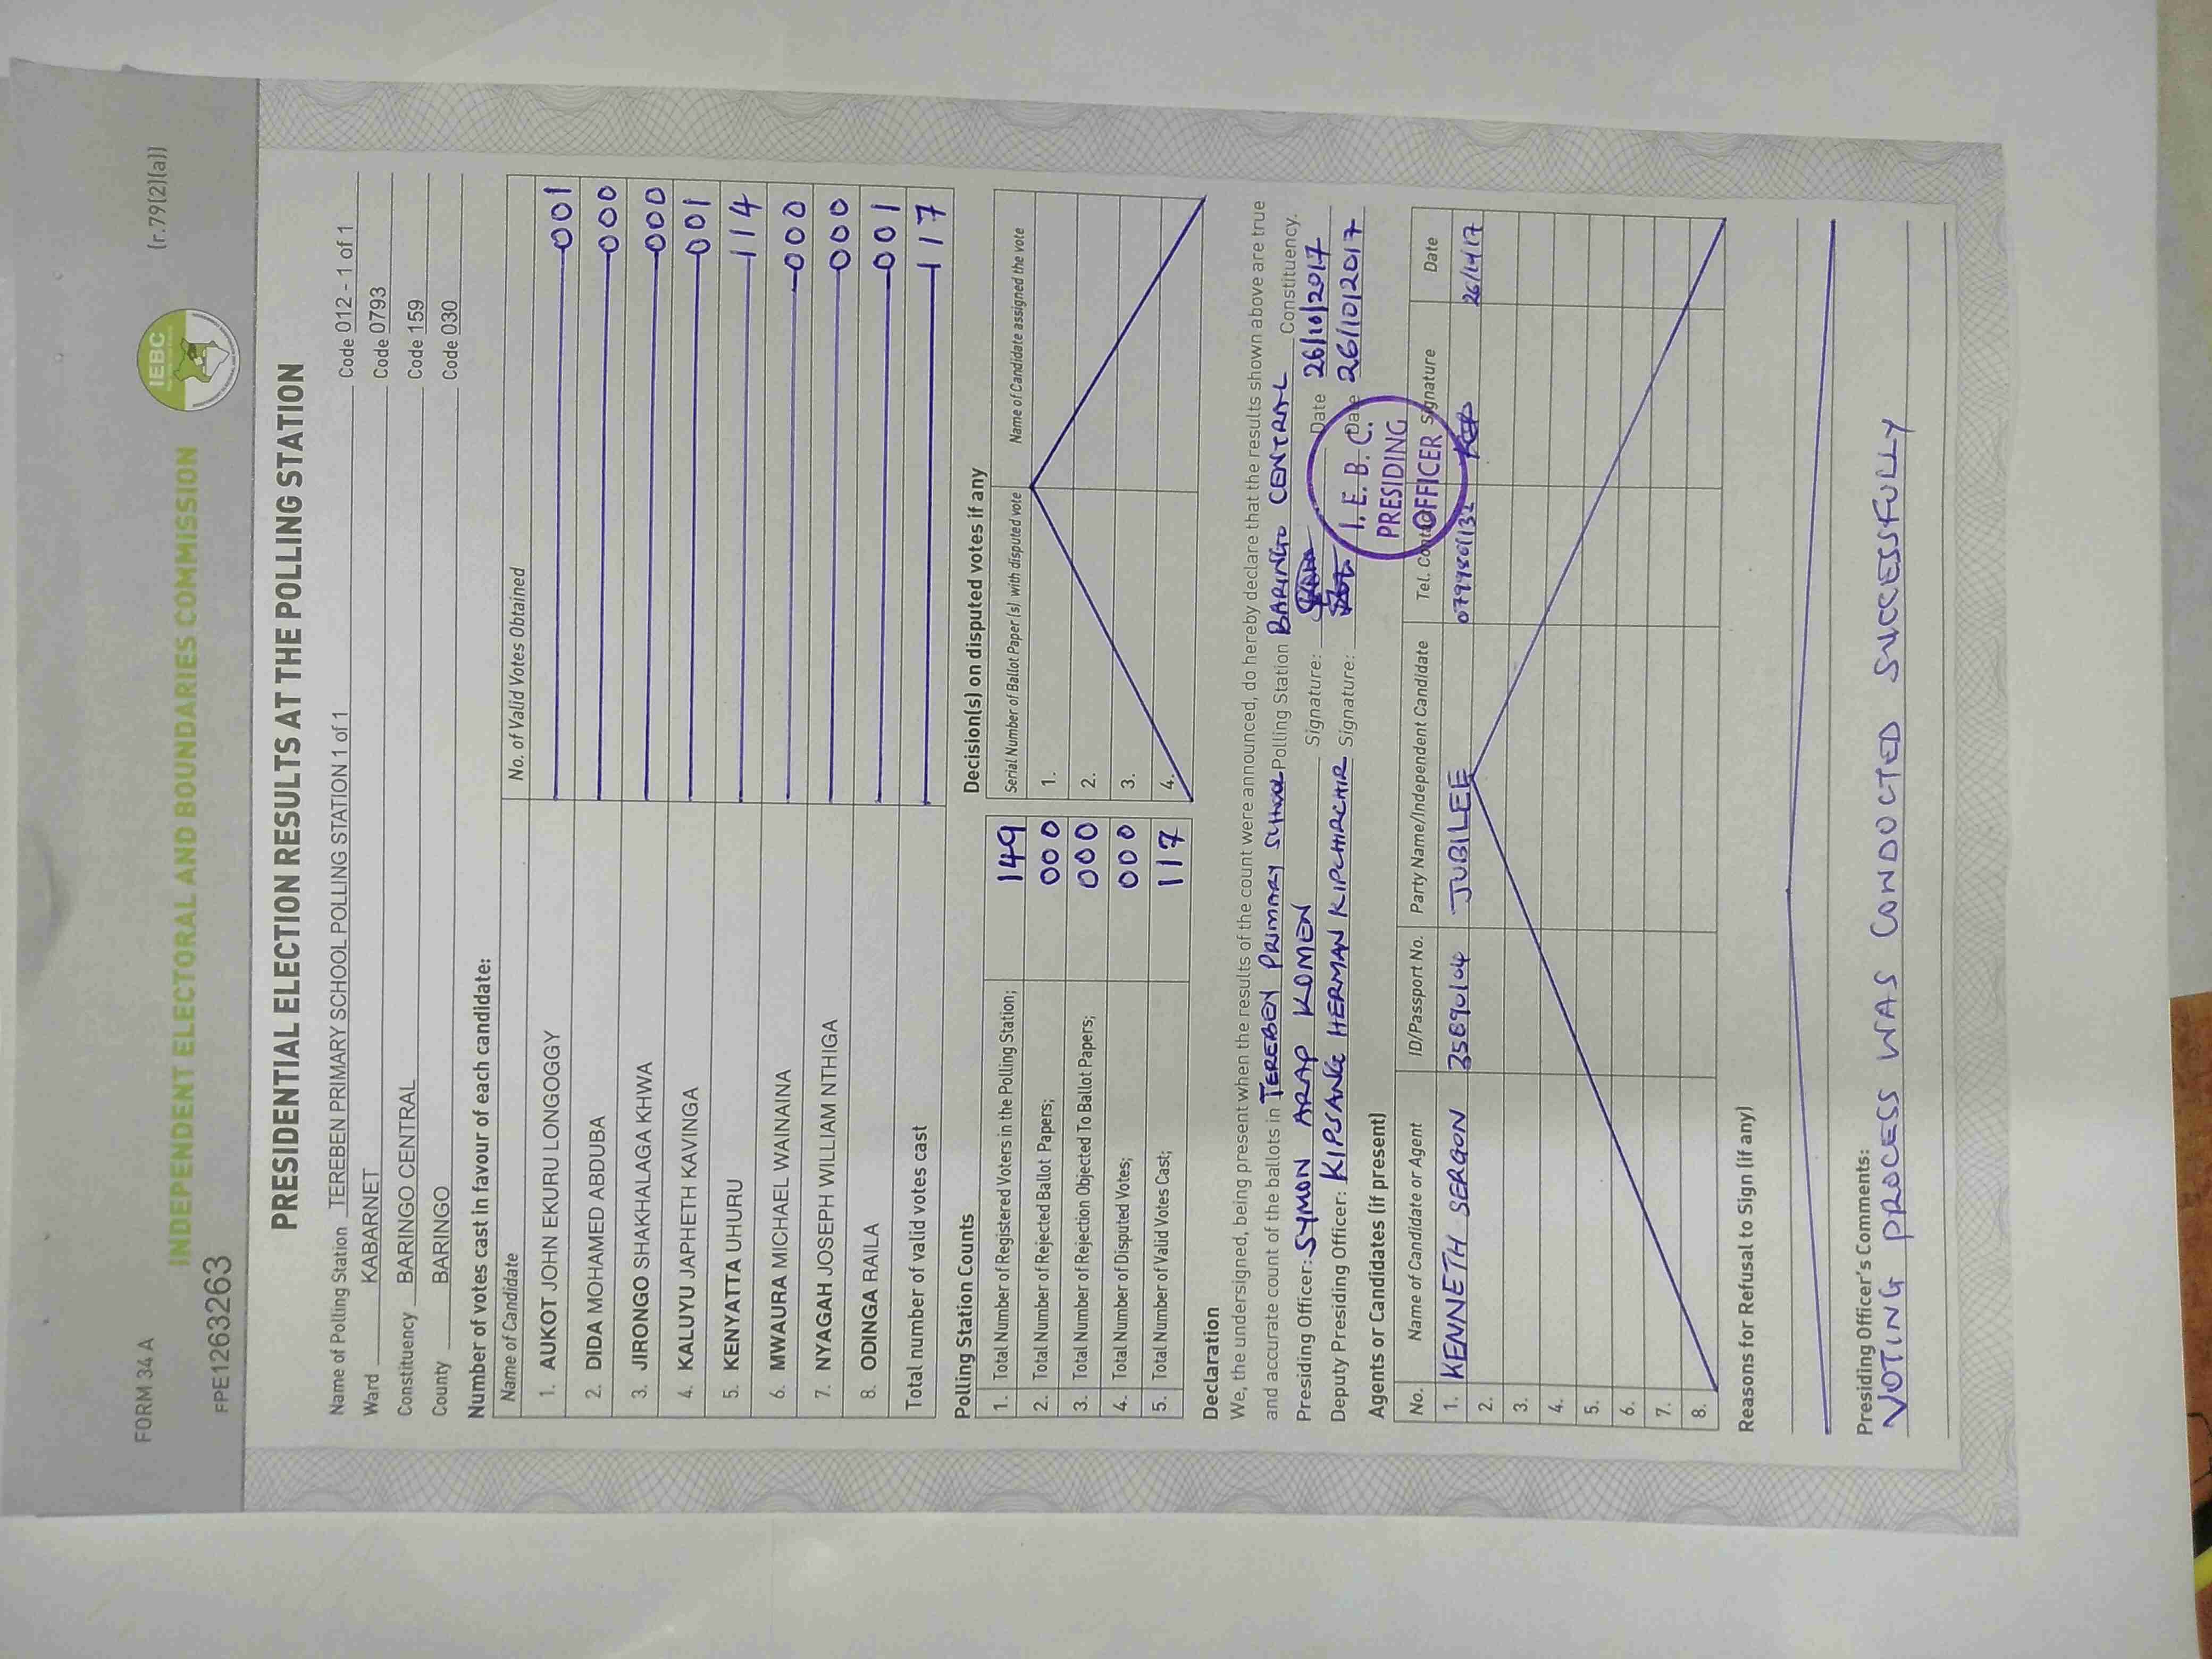 FORM 34 A
(r.79(2)(a))
INDEPENDENT ELECTORAL AND BOUNDARIES COMMISSION
IEBC
FPE1263263
PRESIDENTIAL ELECTION RESULTS AT THE POLLING STATION
Name of Polling Station TEREBEN PRIMARY SCHOOL POLLING STATION 1 of 1 Code 012 - 1 of 1
Ward KABARNET Code 0793
Constituency BARINGO CENTRAL Code 159
County BARINGO Code 030
Number of votes cast in favour of each candidate:
Name of Candidate No. of Valid Votes Obtained
1. AUKOT JOHN EKURU LONGOGGY 001
2. DIDA MOHAMED ABDUBA 000
3. JIRONGO SHAKHALAGA KHWA 000
4. KALUYU JAPHETH KAVINGA 001
5. KENYATTA UHURU 114
6. MWAURA MICHAEL WAINAINA 000
7. NYAGAH JOSEPH WILLIAM NTHIGA 000
8. ODINGA RAILA 001
Total number of valid votes cast 117
Polling Station Counts
1. Total Number of Registered Voters in the Polling Station; 149
2. Total Number of Rejected Ballot Papers; 000
3. Total Number of Rejection Objected To Ballot Papers; 000
4. Total Number of Disputed Votes; 000
5. Total Number of Valid Votes Cast; 117
Decision(s) on disputed votes if any
Serial Number of Ballot Paper (s) with disputed vote Name of Candidate assigned the vote
1.
2.
3.
4.
Declaration
We, the undersigned, being present when the results of the count were announced, do hereby declare that the results shown above are true
and accurate count of the ballots in TEREBEN PRIMARY SCHOOL Polling Station BARINGO CENTRAL Constituency.
Presiding Officer: SYMON ARAP KOMEN Signature: Date 26/10/2017
Deputy Presiding Officer: KIPSANG HERMAN KIPCHIRCHIR Signature: Date 26/10/2017
I. E. B. C.
PRESIDING
OFFICER
Agents or Candidates (if present)
No. Name of Candidate or Agent ID/Passport No. Party Name/Independent Candidate Tel. Contact Signature Date
1. KENNETH SERGON JUBILEE
2.
3.
4.
5.
6.
7.
8.
Reasons for Refusal to Sign (if any)
Presiding Officer's Comments:
VOTING PROCESS WAS CONDOCTED SUCCESSFULLY